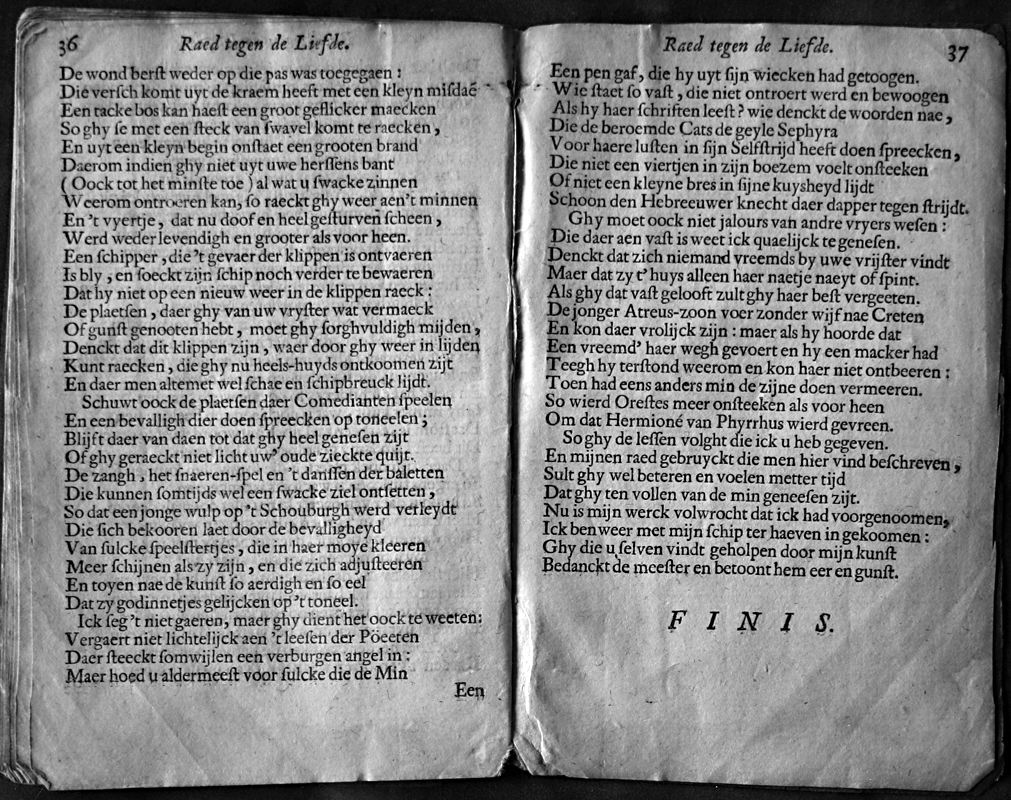 36 Raed tegen de Liefde.
De wond berſt weder op die pas was toegegaen :
Die verſch komt uyt de kraem heeft met een kleyn miſdaē
Een tacke bos kan haeſt een groot geflicker maecken
So ghy ſe met een ſteck van ſwavel komt te raecken ,
En uyt een kleyn begin onſtaet een grooten brand
Daerom indien ghy niet uyt uwe herſſens bant
( Oock tot het minſte toe ) al wat u ſwacke zinnen
Weerom ontroeren kan, ſo raeckt ghy weer aen't minnen
En 't vyertje , dat nu doof en heel geſturven ſcheen ,
Werd weder levendigh en grooter als voor heen.
Een ſchipper , die 't gevaer der klippen is ontvaeren
Is bly , en ſoeckt zijn ſchip noch verder te bewaeren
Dat hy niet op een nieuw weer in de klippen raeck :
De plaetſen , daer ghy van uw vryſter wat vermaeck
Of gunſt genooten hebt , moet ghy ſorghvuldigh mijden ,
Denckt dat dit klippen zijn , waer door ghy weer in lijden
Kunt raecken , die ghy nu heels-huyds ontkoomen zijt
En daer men altemet wel ſchae en ſchipbreuck lijdt.
Schuwt oock de plaetſen daer Comedianten ſpeelen
En een bevalligh dier doen ſpreecken op toneelen ;
Blijft daer van daen tot dat ghy heel geneſen zijt
Of ghy geraeckt niet licht uw' oude zieckte quijt.
De zangh , het ſnaeren-ſpel en 't danſſen der baletten
Die kunnen ſomtijds wel een ſwacke ziel ontſetten ,
So dat een jonge wulp op 't Schouburgh werd verleydt
Die ſich bekooren laet door de bevalligheyd
Van ſulcke ſpeelſtertjes , die in haer moye kleeren
Meer ſchijnen als zy zijn , en die zich adjuſteeren
En toyen nae de kunſt ſo aerdigh en ſo eel
Dat zy godinnetjes gelijcken op 't toneel.
Ick ſeg 't niet gaeren, maer ghy dient het oock te weeten:
Vergaert niet lichtelijck aen 't leeſen der Pöeeten
Daer ſteeckt ſomwijlen een verburgen angel in :
Maer hoed u aldermeeſt voor ſulcke die de Min
Een
Raed tegen de Liefde. 37
Een pen gaf, die hy uyt ſijn wiecken had getoogen.
Wie ſtaet ſo vaſt , die niet ontroert werd en bewoogen
Als hy haer ſchriften leeſt ? wie denckt de woorden nae ,
Die de beroemde Cats de geyle Sephyra
Voor haere luſten in ſijn Selfſtrijd heeft doen ſpreecken ,
Die niet een viertjen in zijn boezem voelt onſteeken
Of niet een kleyne bres in ſijne kuysheyd lijdt
Schoon den Hebreeuwer knecht daer dapper tegen ſtrijdt.
Ghy moet oock niet jalours van andre vryers weſen :
Die daer aen vaſt is weet ick quaelijck te geneſen.
Denckt dat zich niemand vreemds by uwe vrijſter vindt
Maer dat zy t' huys alleen haer naetje naeyt of ſpint.
Als ghy dat vaſt gelooft zult ghy haer beſt vergeeten.
De jonger Atreus-zoon voer zonder wijf nae Creten
En kon daer vrolijck zijn : maer als hy hoorde dat
Een vreemd' haer wegh gevoert en hy een macker had
Teegh hy terſtond weerom en kon haer niet ontbeeren :
Toen had eens anders min de zijne doen vermeeren.
So wierd Oreſtes meer onſteeken als voor heen
Om dat Hermioné van Phyrrhus wierd gevreen.
So ghy de leſſen volght die ick u heb gegeven.
En mijnen raed gebruyckt die men hier vind beſchreven ,
Sult ghy wel beteren en voelen metter tijd
Dat ghy ten vollen van de min geneeſen zijt.
Nu is mijn werck volwrocht dat ick had voorgenoomen,
Ick ben weer met mijn ſchip ter haeven in gekoomen :
Ghy die u ſelven vindt geholpen door mijn kunſt
Bedanckt de meeſter en betoont hem eer en gunſt.
FINIS.